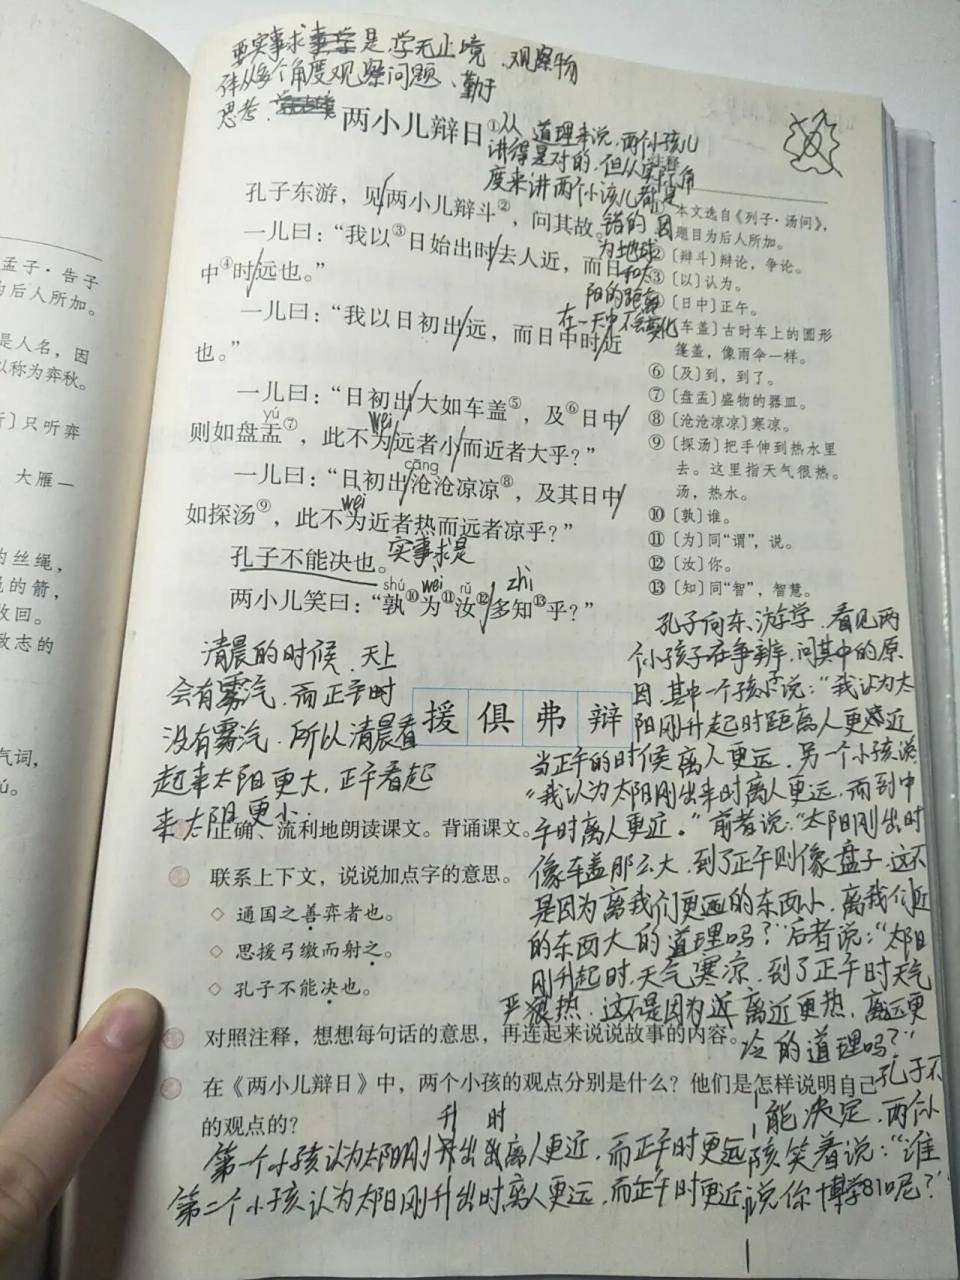 要实事求是.学无止境、观察物
体从多个角度观察问题、勤于
思考.
两小儿辩日①
从道理来说,两个小孩儿
讲得是对的.但从实际角
度来讲两个小该儿都是
错的.因
为地球
和太
阳的距离
在一天中不会变化
孔子东游,见两小儿辩斗②,问其故。
一儿曰:“我以③日始出时去人近,而日
中④时远也。”
一儿曰:“我以日初出远,而日中时近
也。”
一儿曰:“日初出大如车盖⑤,及⑥日中
yú
则如盘盂⑦,此不为远者小而近者大乎?”
wéi
cāng
一儿曰:“日初出沧沧凉凉⑧,及其日中
wéi
如探汤⑨,此不为近者热而远者凉乎?”
孔子不能决也。
实事求是
shú wéi rǔ zhì
两小儿笑曰:“孰⑩为⑪汝⑫多知⑬乎?”
本文选自《列子·汤问》,
题目为后人所加。
②〔辩斗〕辩论,争论。
③〔以〕认为。
〔日中〕正午。
〔车盖〕古时车上的圆形
篷盖,像雨伞一样。
⑥〔及〕到,到了。
⑦〔盘盂〕盛物的器皿。
⑧〔沧沧凉凉〕寒凉。
⑨〔探汤〕把手伸到热水里
去。这里指天气很热。
汤,热水。
⑩〔孰〕谁。
⑪〔为〕同“谓”,说。
⑫〔汝〕你。
⑬〔知〕同“智”,智慧。
清晨的时候.天上
会有雾汽.而正午时
没有雾汽.所以清晨看
起来太阳更大,正午看起
来太阳更小.
援 俱 弗 辩
孔子向东游学.看见两
个小孩子在争辨.问其中的原
因.其中一个孩子说:“我认为太
阳刚升起时距离人更近
当正午的时候离人更远.另一个小孩说
“我认为太阳刚出来时离人更远.而到中
午时离人更近。”前者说:“太阳刚出时
像车盖那么大.到了正午则像盘子.这不
是因为离我们更远的东西小.离我们近
的东西大的道理吗?”后者说:“太阳
刚升起时.天气寒凉.到了正午时天气
很热.这不是因为距离近更热,离远更
冷的道理吗?”
孔子不
能决定.两个小
孩笑着说:“谁
说你博学的呢?”
正确、流利地朗读课文。背诵课文。
联系上下文,说说加点字的意思。
◇ 通国之善弈者也。
◇ 思援弓缴而射之。
◇ 孔子不能决也。
对照注释,想想每句话的意思,再连起来说说故事的内容。
在《两小儿辩日》中,两个小孩的观点分别是什么?他们是怎样说明自己
的观点的?
升 时
第一个小孩认为太阳刚升出离人更近.而正午时更远
第二个小孩认为太阳刚升出时离人更远.而正午时更近.
孟子·告子
为后人所加。
是人名,因
以称为弈秋。
〕只听弈
大雁一
的丝绳,
的箭,
收回。
致志的
气词,
ú。